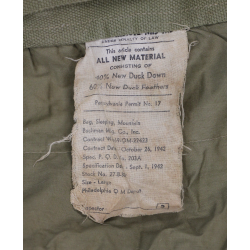 UNDER PENALTY OF LAW
This article contains
ALL NEW MATERIAL
CONSISTING OF
40% New Duck Down
60% New Duck Feathers
Pennsylvania Permit Nr. 17
Bag, Sleeping, Mountain
Mfg. Co., Inc.
Contract
Contract Dat. October 26, 1942
Spec. P. Q. D.
Specification Dat. Sept. 1, 1942
Stock No.
Size - Large
Philadelphia Q M Depot